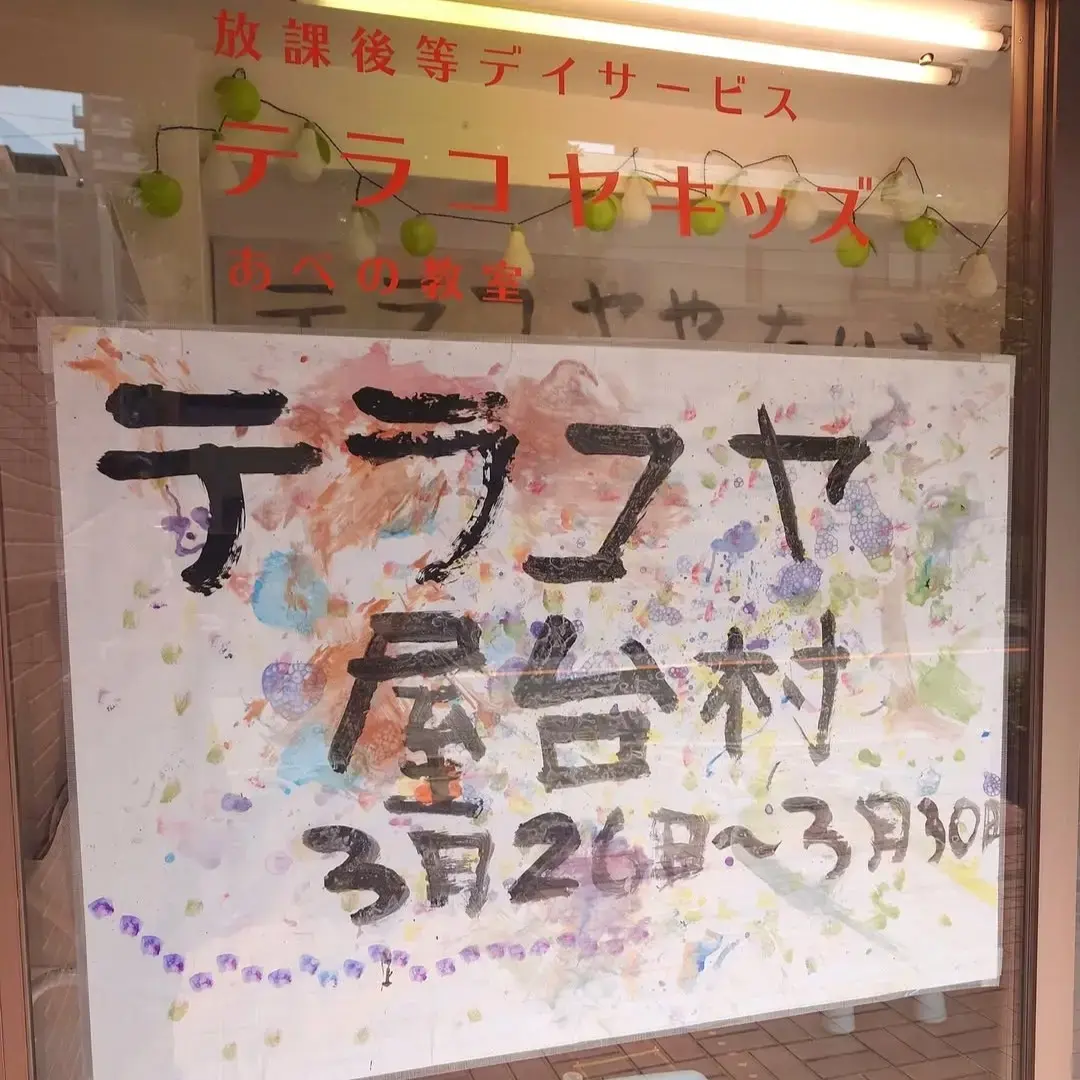 放課後等デイサービス
テラコヤキッズ
あべの教室
テラコヤや
テラコヤ
屋台村
3月26日～3月30日